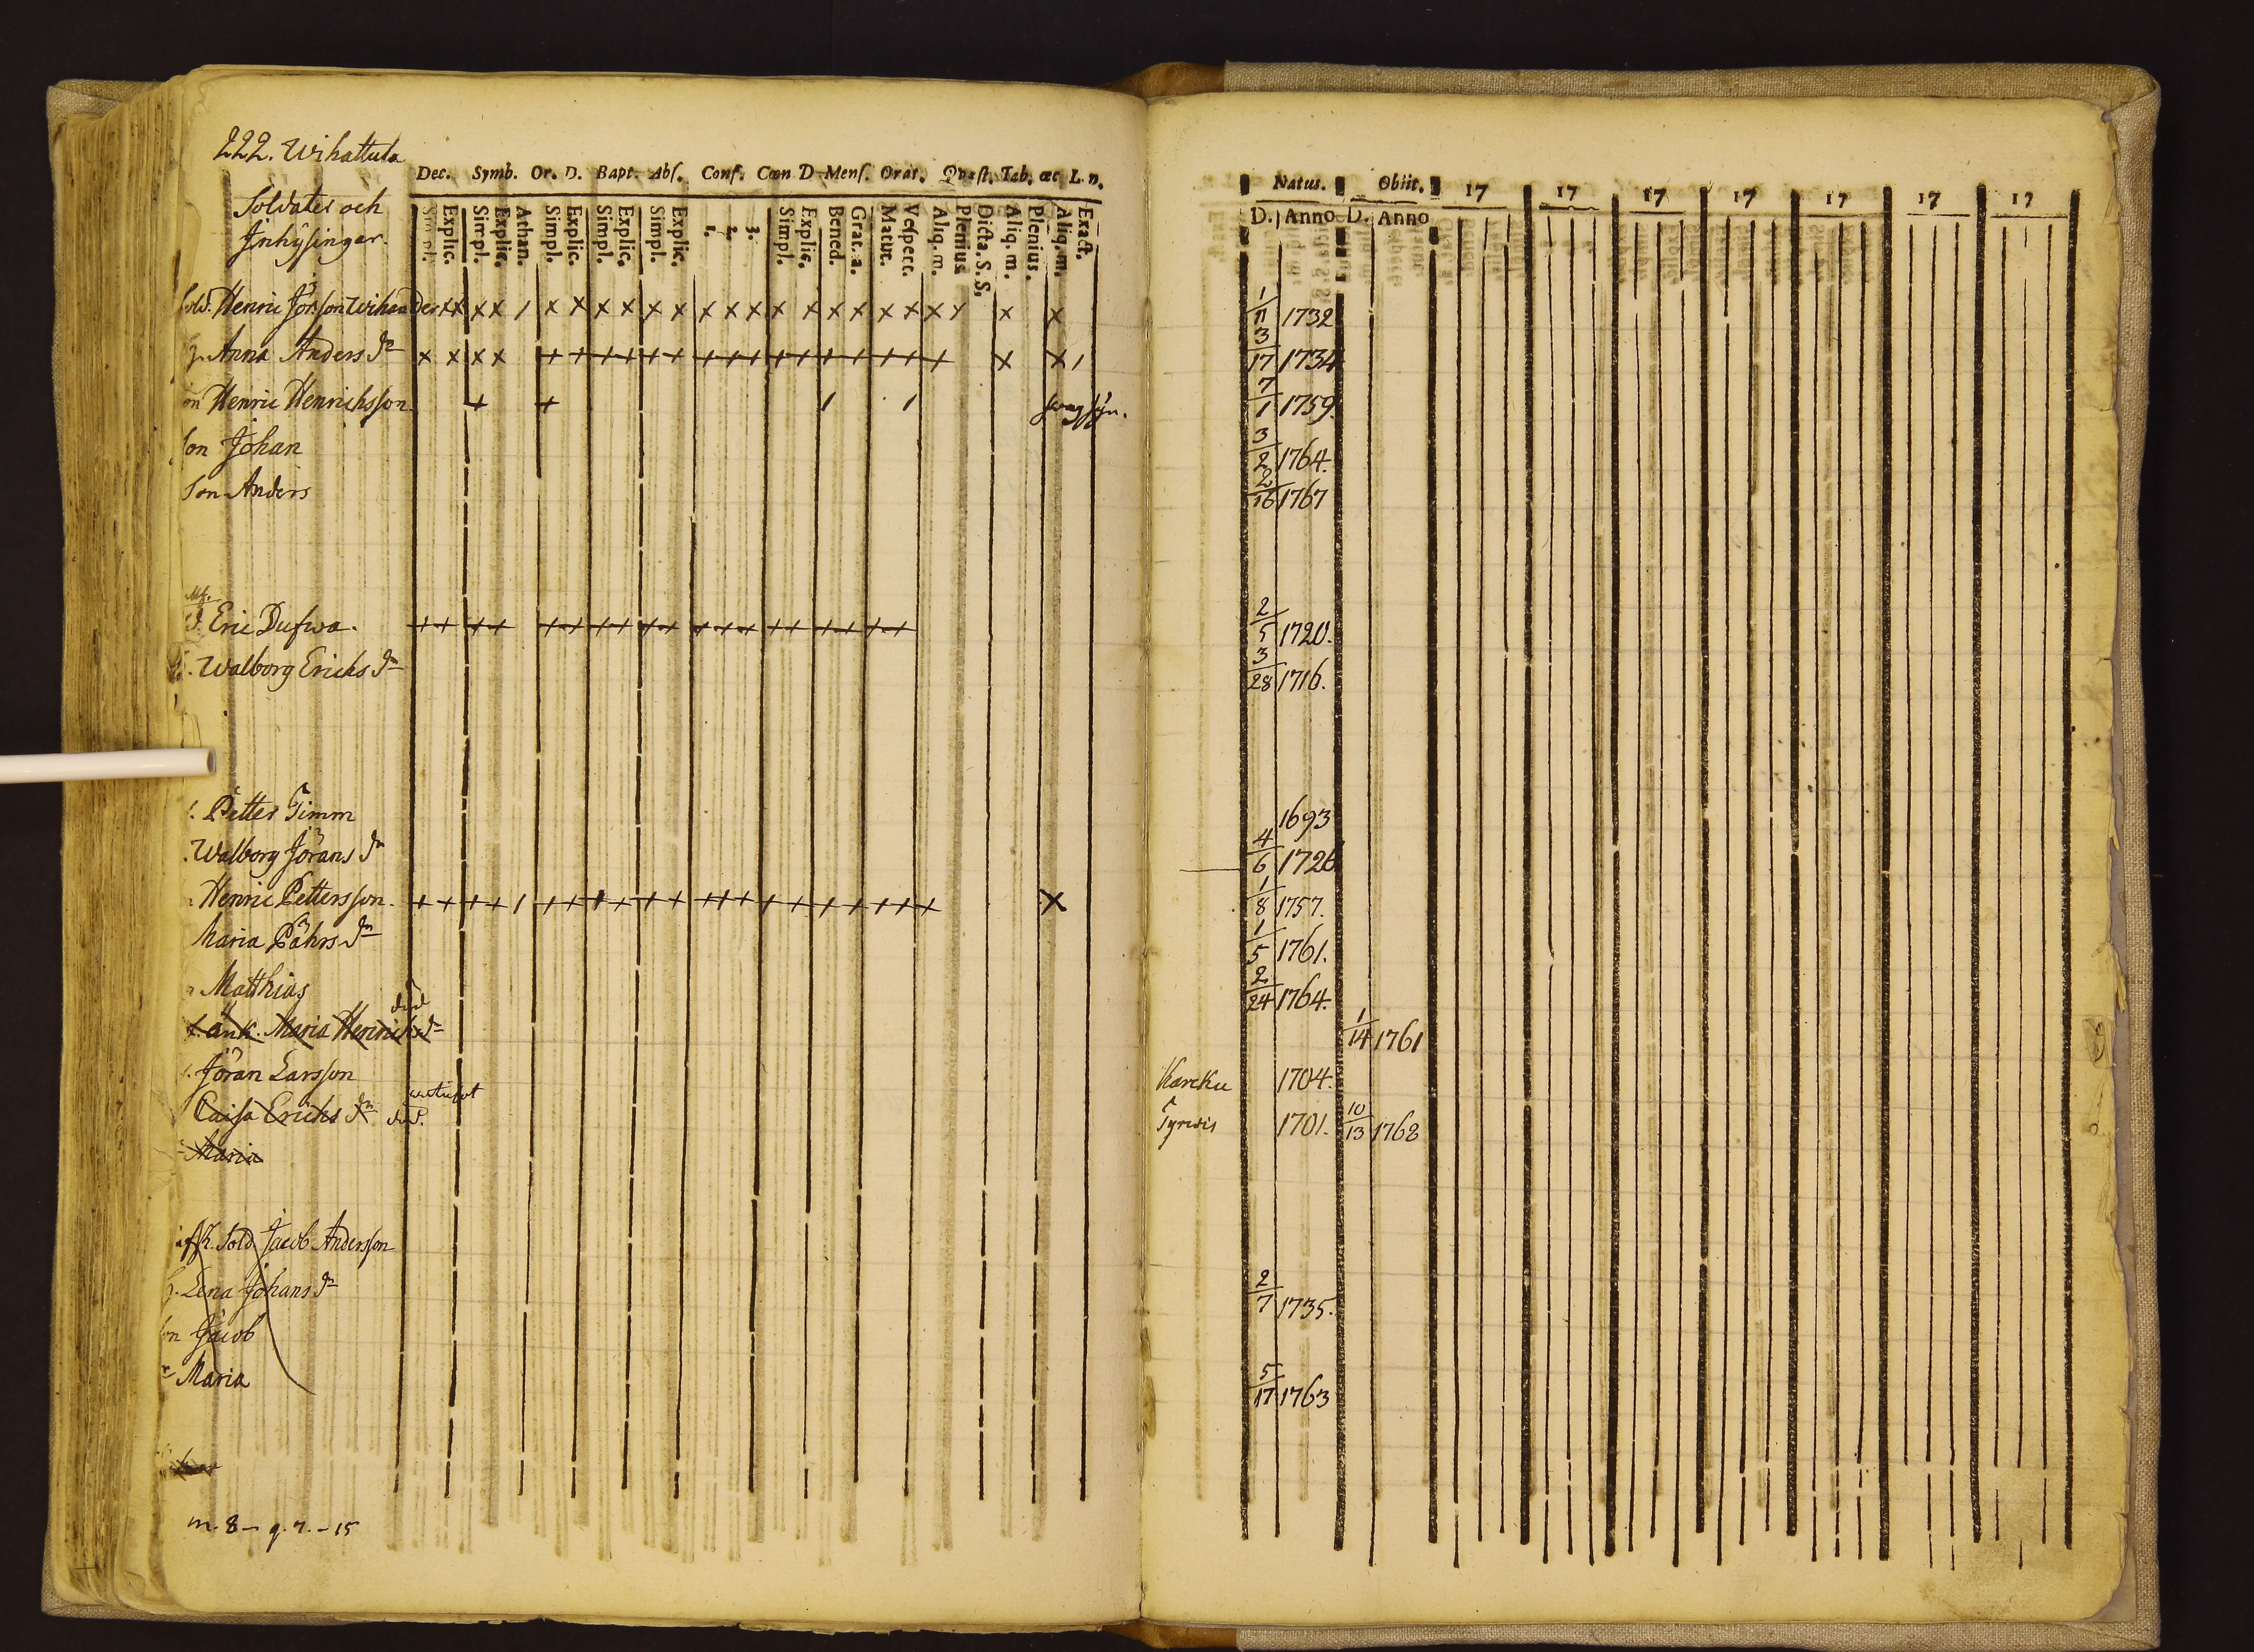 222. Wihattula
Dec. Symb. Or. D. Bapt. Abs. Conf. Cœn D Mens. Orat. Quæst. Tab. œc L. n.
Soldater och
Inhysingar.
Simpl. Explic. Simpl. Explic. Athan. Simpl. Explic. Simpl. Explic. Simpl. Explic. 1. 2. 3. Simpl. Explic. Bened. Grat. a. Matut. Vesper. Aliq. m. Plenius Dicta. S. S. Aliq. m. Plenius. Aliq. m. Exact.
Sold. Henric Jörsson Wihander x x x x / x x x x x x x x x x x x x x x x x x x
h. Anna Anders dr x x x x + + + + + + + + + + + + + + + + + x x /
on Henric Henrichsson + + / /
son Johan
son Anders
Eric Dufwa. + + + + + + + + + + + + + + + + + +
Walborg Erichs dr
Petter Timm
Walborg Jörans dr
Henric Pettersson. + + + + / + + + + + + + + + + + + + + + + x
Maria Påhrs dr
Matthias
död
änk. Maria Henrichs dr
Jöran Larsson
Caisa Erichs dr död.
Maria
afsk. Sold. Jacob Andersson
h. Lena Johans dr
on Jacob
Maria
m. 8 - q. 7. - 15
Natus. Obiit. 17 17 17 17 17 17 17
D. Anno D. Anno
1/11 1732
3/17 1734
7/1 1759.
3/2 1764.
2/16 1767
2/5 1720.
3/28 1716.
1693
4/6 1726
1/8 1757.
1/5 1761.
2/24 1764.
1/14 1761
Karcku 1704.
Tyrwis 1701. 10/13 1768
2/7 1735.
5/17 1763